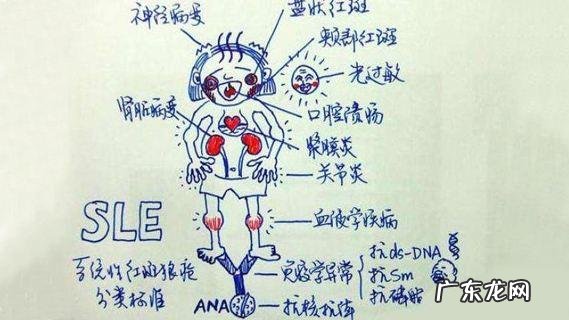 神经病变
盘状红斑
颊部红斑
光过敏
肾脏病变
口腔溃疡
浆膜炎
关节炎
SLE
血液学疾病
系统性红斑狼疮
分类标准
免疫学异常
抗ds-DNA
抗Sm
抗磷脂
ANA
抗核抗体
广东龙网